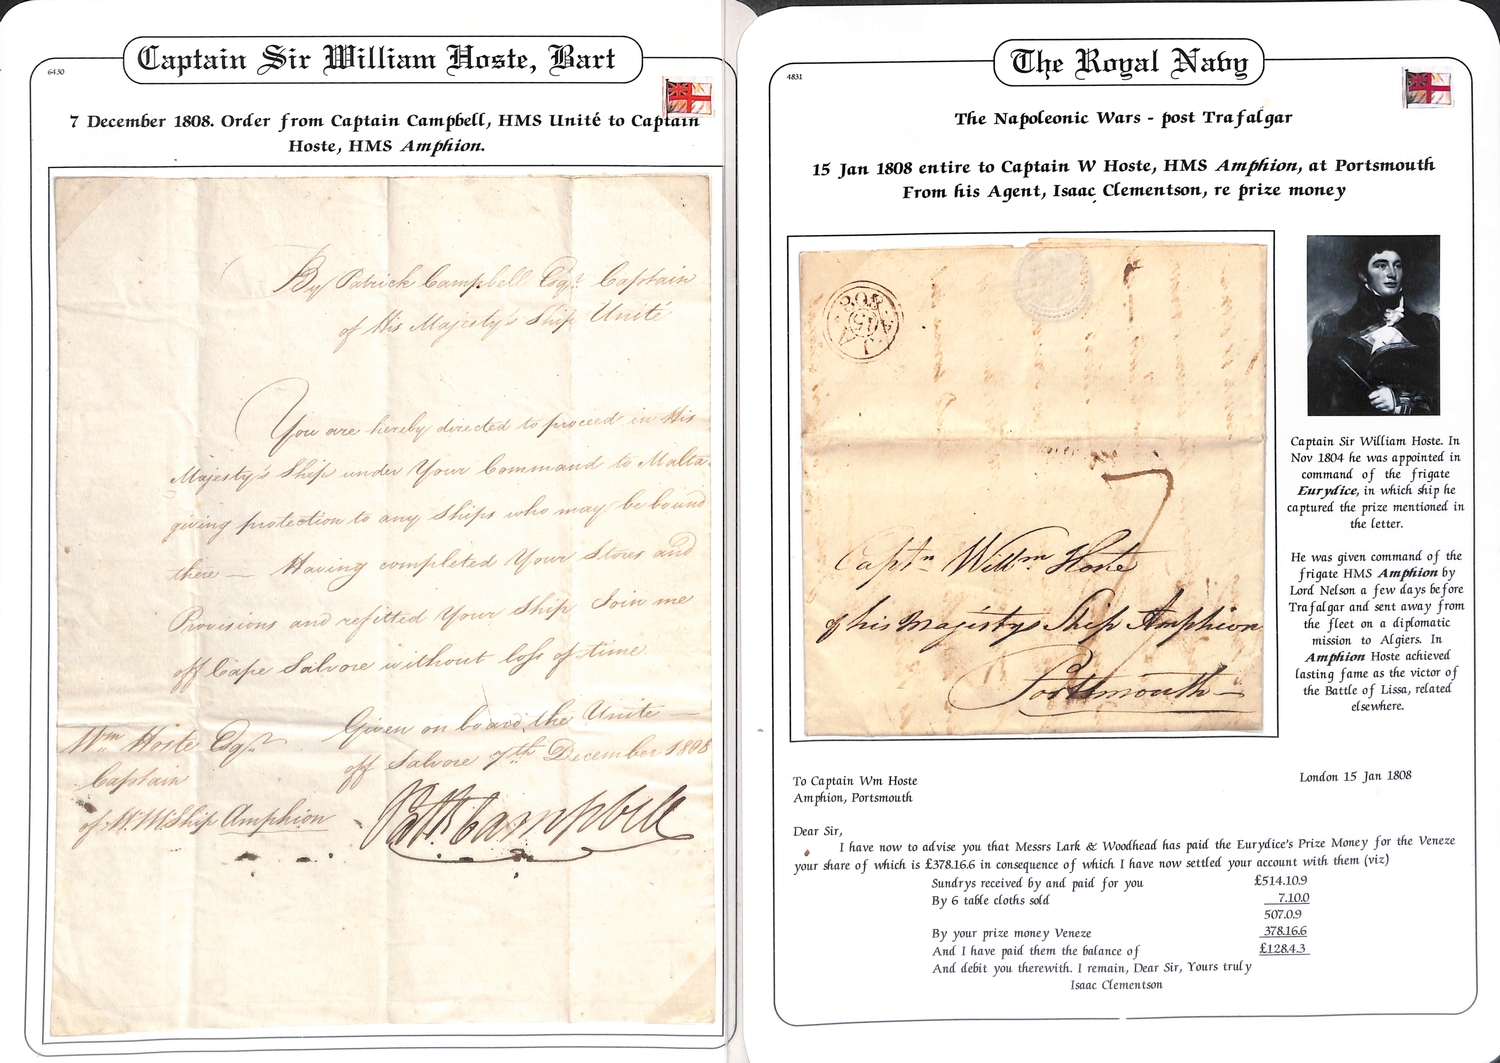 Captain Sir William Hoste, Bart
6430
7 December 1808. Order from Captain Campbell, HMS Unité to Captain
Hoste, HMS Amphion.
By Patrick Campbell Esqr. Captain
of His Majesty's Ship Unité
You are hereby directed to proceed in His
Majesty's Ship under Your Command to Malta
giving protection to any Ships who may be bound
there — Having completed Your Stores and
Provisions and refitted Your Ship Join me
off Cape Salvore without loss of time
Given on board the Unite —
off Salvore 7th December 1808
Wm Hoste Esqr
Captain
of H.M Ship Amphion
Patk. Campbell
The Royal Navy
4831
The Napoleonic Wars - post Trafalgar
15 Jan 1808 entire to Captain W Hoste, HMS Amphion, at Portsmouth
From his Agent, Isaac Clementson, re prize money
JA
15
808
7
Captn Willm Hoste
of his Majestys Ship Amphion
Portsmouth
Captain Sir William Hoste. In
Nov 1804 he was appointed in
command of the frigate
Eurydice, in which ship he
captured the prize mentioned in
the letter.
He was given command of the
frigate HMS Amphion by
Lord Nelson a few days before
Trafalgar and sent away from
the fleet on a diplomatic
mission to Algiers. In
Amphion Hoste achieved
lasting fame as the victor of
the Battle of Lissa, related
elsewhere.
To Captain Wm Hoste
Amphion, Portsmouth
London 15 Jan 1808
Dear Sir,
I have now to advise you that Messrs Lark & Woodhead has paid the Eurydice's Prize Money for the Veneze
your share of which is £378.16.6 in consequence of which I have now settled your account with them (viz)
Sundrys received by and paid for you £514.10.9
By 6 table cloths sold 7.10.0
507.0.9
By your prize money Veneze 378.16.6
And I have paid them the balance of £128.4.3
And debit you therewith. I remain, Dear Sir, Yours truly
Isaac Clementson